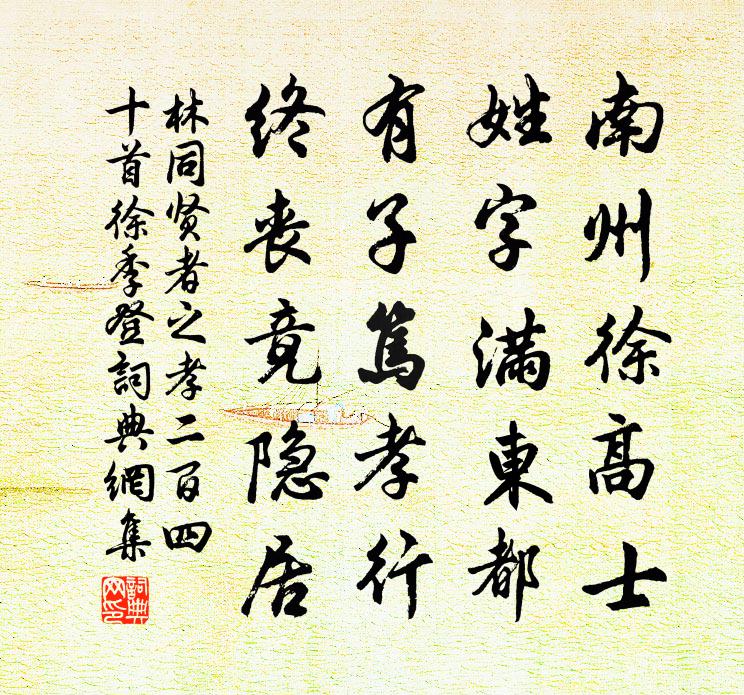 南州徐高士
姓字滿東都
有子篤孝行
終喪竟隐居
林同贤者之孝二百四
十首徐季登詞典網集
詞典
网印